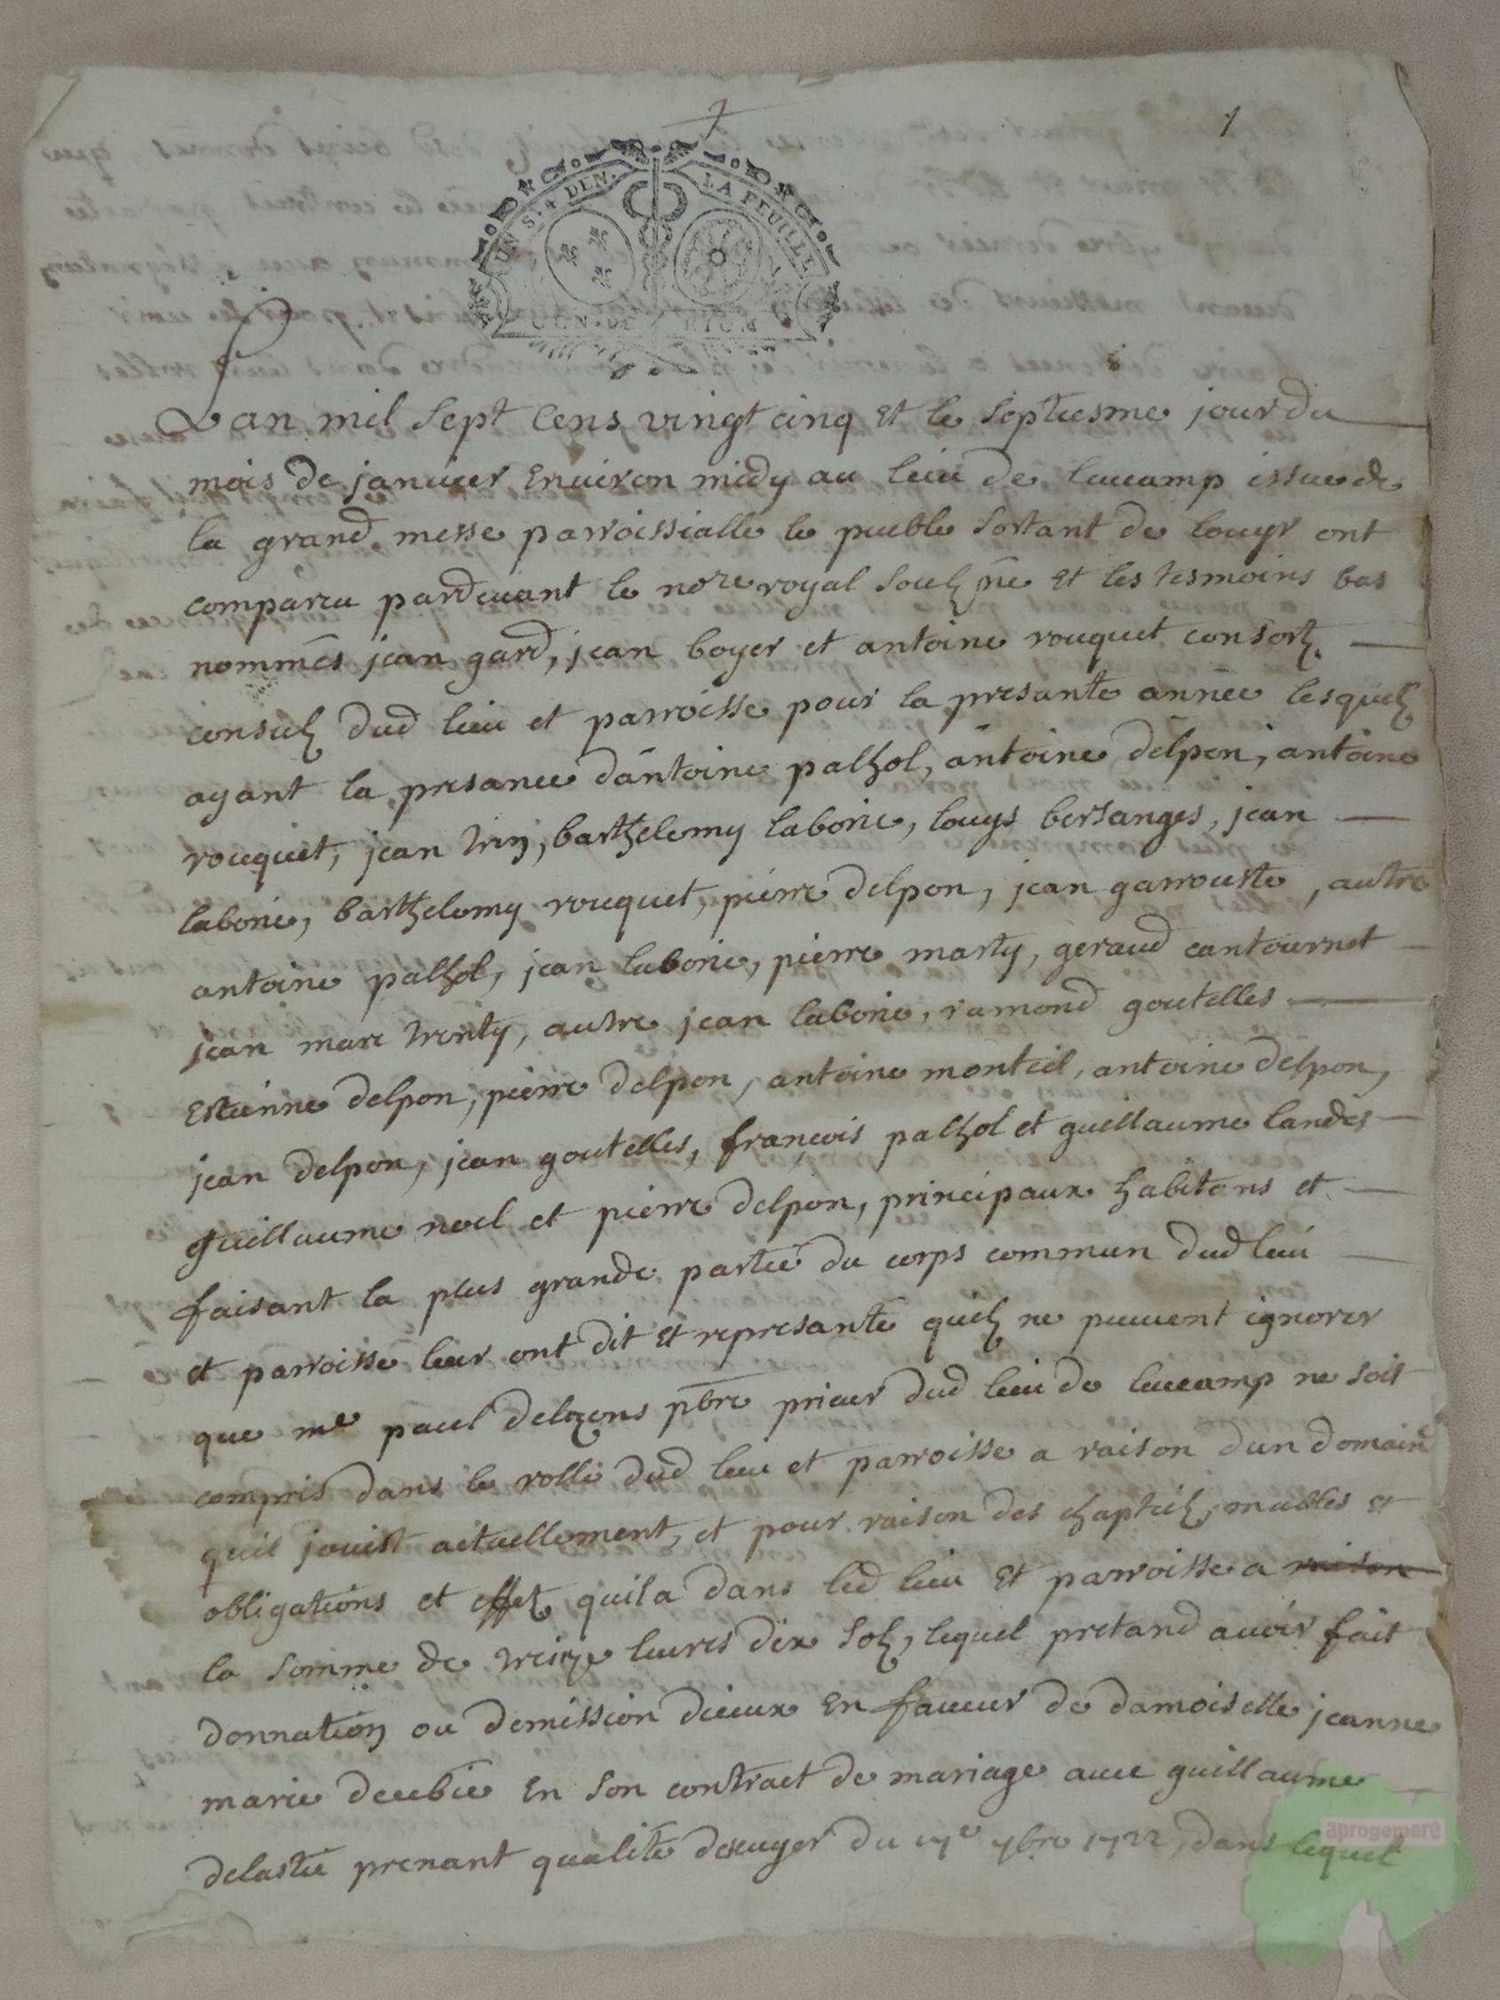 1
UN S. 4 DEN. LA FEUILLE
Lan mil sept cens vingt cinq et le septiesme jour du
mois de janvier environ midy au lieu de leucamp issue de
la grand messe parroissialle le peuble sortant de louyr ont
comparu pardevant le nore royal soulz ne et les tesmoins bas
nommés jean gard, jean boyer et antoine rouquet consortz
consulz dud lieu et parroisse pour la presante année lesquelz
ayant la presance dantoine palhol, antoine delpon, antoine
rouquet, jean barthelemy laborie, louys bersanges, jean
laborie, barthelemy rouquet, pierre delpon, jean garrouste, autre
antoine palhol, jean laborie, pierre marty, geraud cantournet
jean marc trenty, autre jean laborie, ramond goutelles
estienne delpon, pierre delpon, antoine monteil, antoine delpon,
jean delpon, jean goutelles, françois palhol et guillaume landes
guillaume noel et pierre delpon, principaux habitans et
faisant la plus grande partie du corps commun dud lieu
et parroisse leur ont dit et representé quilz ne peuvent ignorer
que me paul delzons pbre prieur dud lieu de leucamp ne soit
compris dans le rolle dud lieu et parroisse a raison dun domaine
quil jouist actuellement, et pour raison des chaptulz, mubles et
obligations et effetz quil a dans led lieu et parroisse a raison
la somme de treize livres dix solz, lequel pretand avoir fait
donnation ou demission dicieux en faveur de damoiselle jeanne
marie deubie en son contract de mariage avec guillaume
delastic prenant qualité descuyer du 7bre 1722, dans lequel
aprogemere